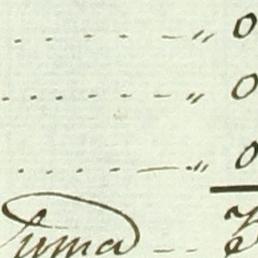 . . . . . . — „ 0
. . . . . . — „ 0
. . . . . . — „ 0
Suma — —